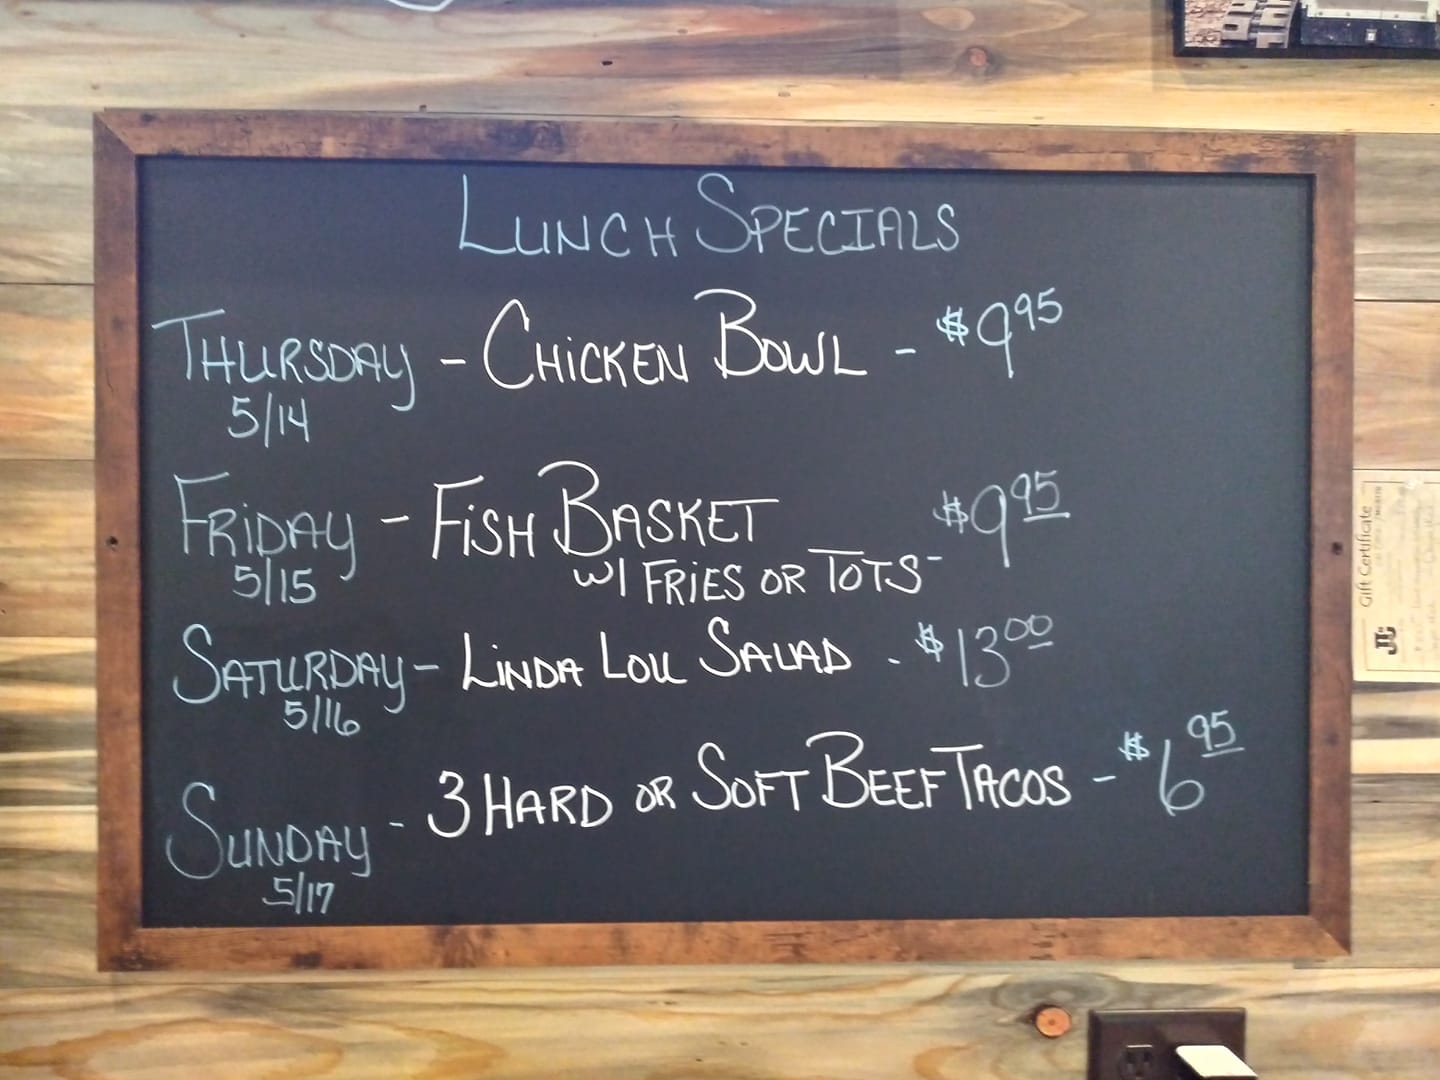 LUNCH SPECIALS
THURSDAY - CHICKEN BOWL - $9.95
5/14
FRIDAY - FISH BASKET $9.95
5/15 W/ FRIES OR TOTS -
SATURDAY - LINDA LOU SALAD - $13.00
5/16
SUNDAY - 3 HARD OR SOFT BEEF TACOS - $6.95
5/17
Gift Certificate